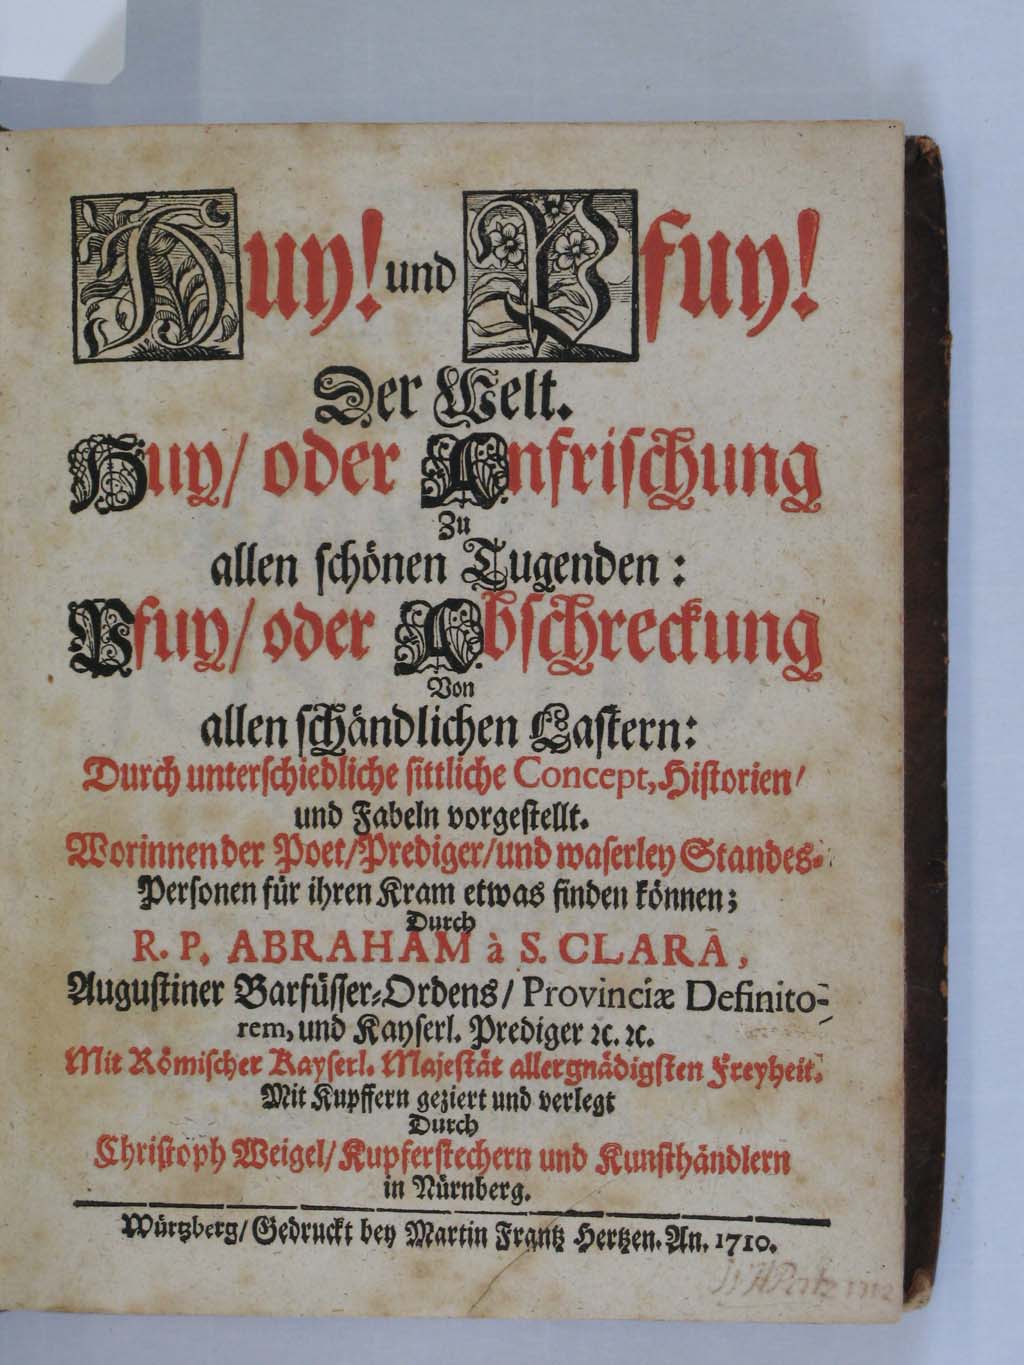 Huy! und Pfuy!
Der Welt.
Huy/ oder Anfrischung
Zu
allen schönen Tugenden:
Pfuy/ oder Abschreckung
Von
allen schändlichen Lastern:
Durch unterschiedliche sittliche Concept, Historien/
und Fabeln vorgestellt.
Worinnen der Poet/ Prediger/ und waserley Standes-
Personen für ihren Kram etwas finden können;
Durch
R. P. ABRAHAM à S. CLARA,
Augustiner Barfüsser-Ordens/ Provinciæ Definito-
rem, und Kayserl. Prediger ꝛc. ꝛc.
Mit Römischer Kayserl. Majestät allergnädigsten Freyheit.
Mit Kupffern geziert und verlegt
Durch
Christoph Weigel/ Kupferstechern und Kunsthändlern
in Nürnberg.
Würtzberg/ Gedruckt bey Martin Frantz Hertzen. An. 1710.